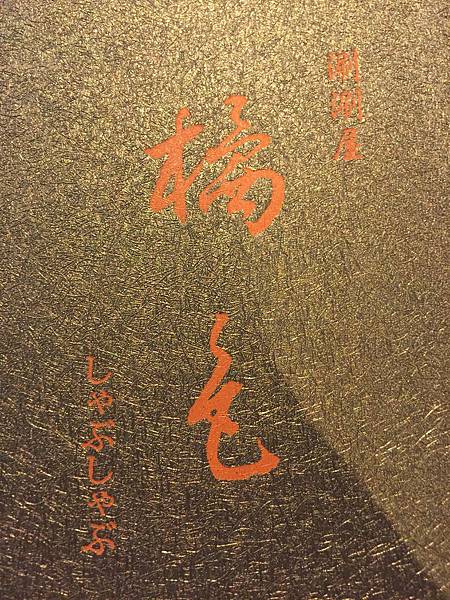 涮涮屋
橘色
しゃぶしゃぶ